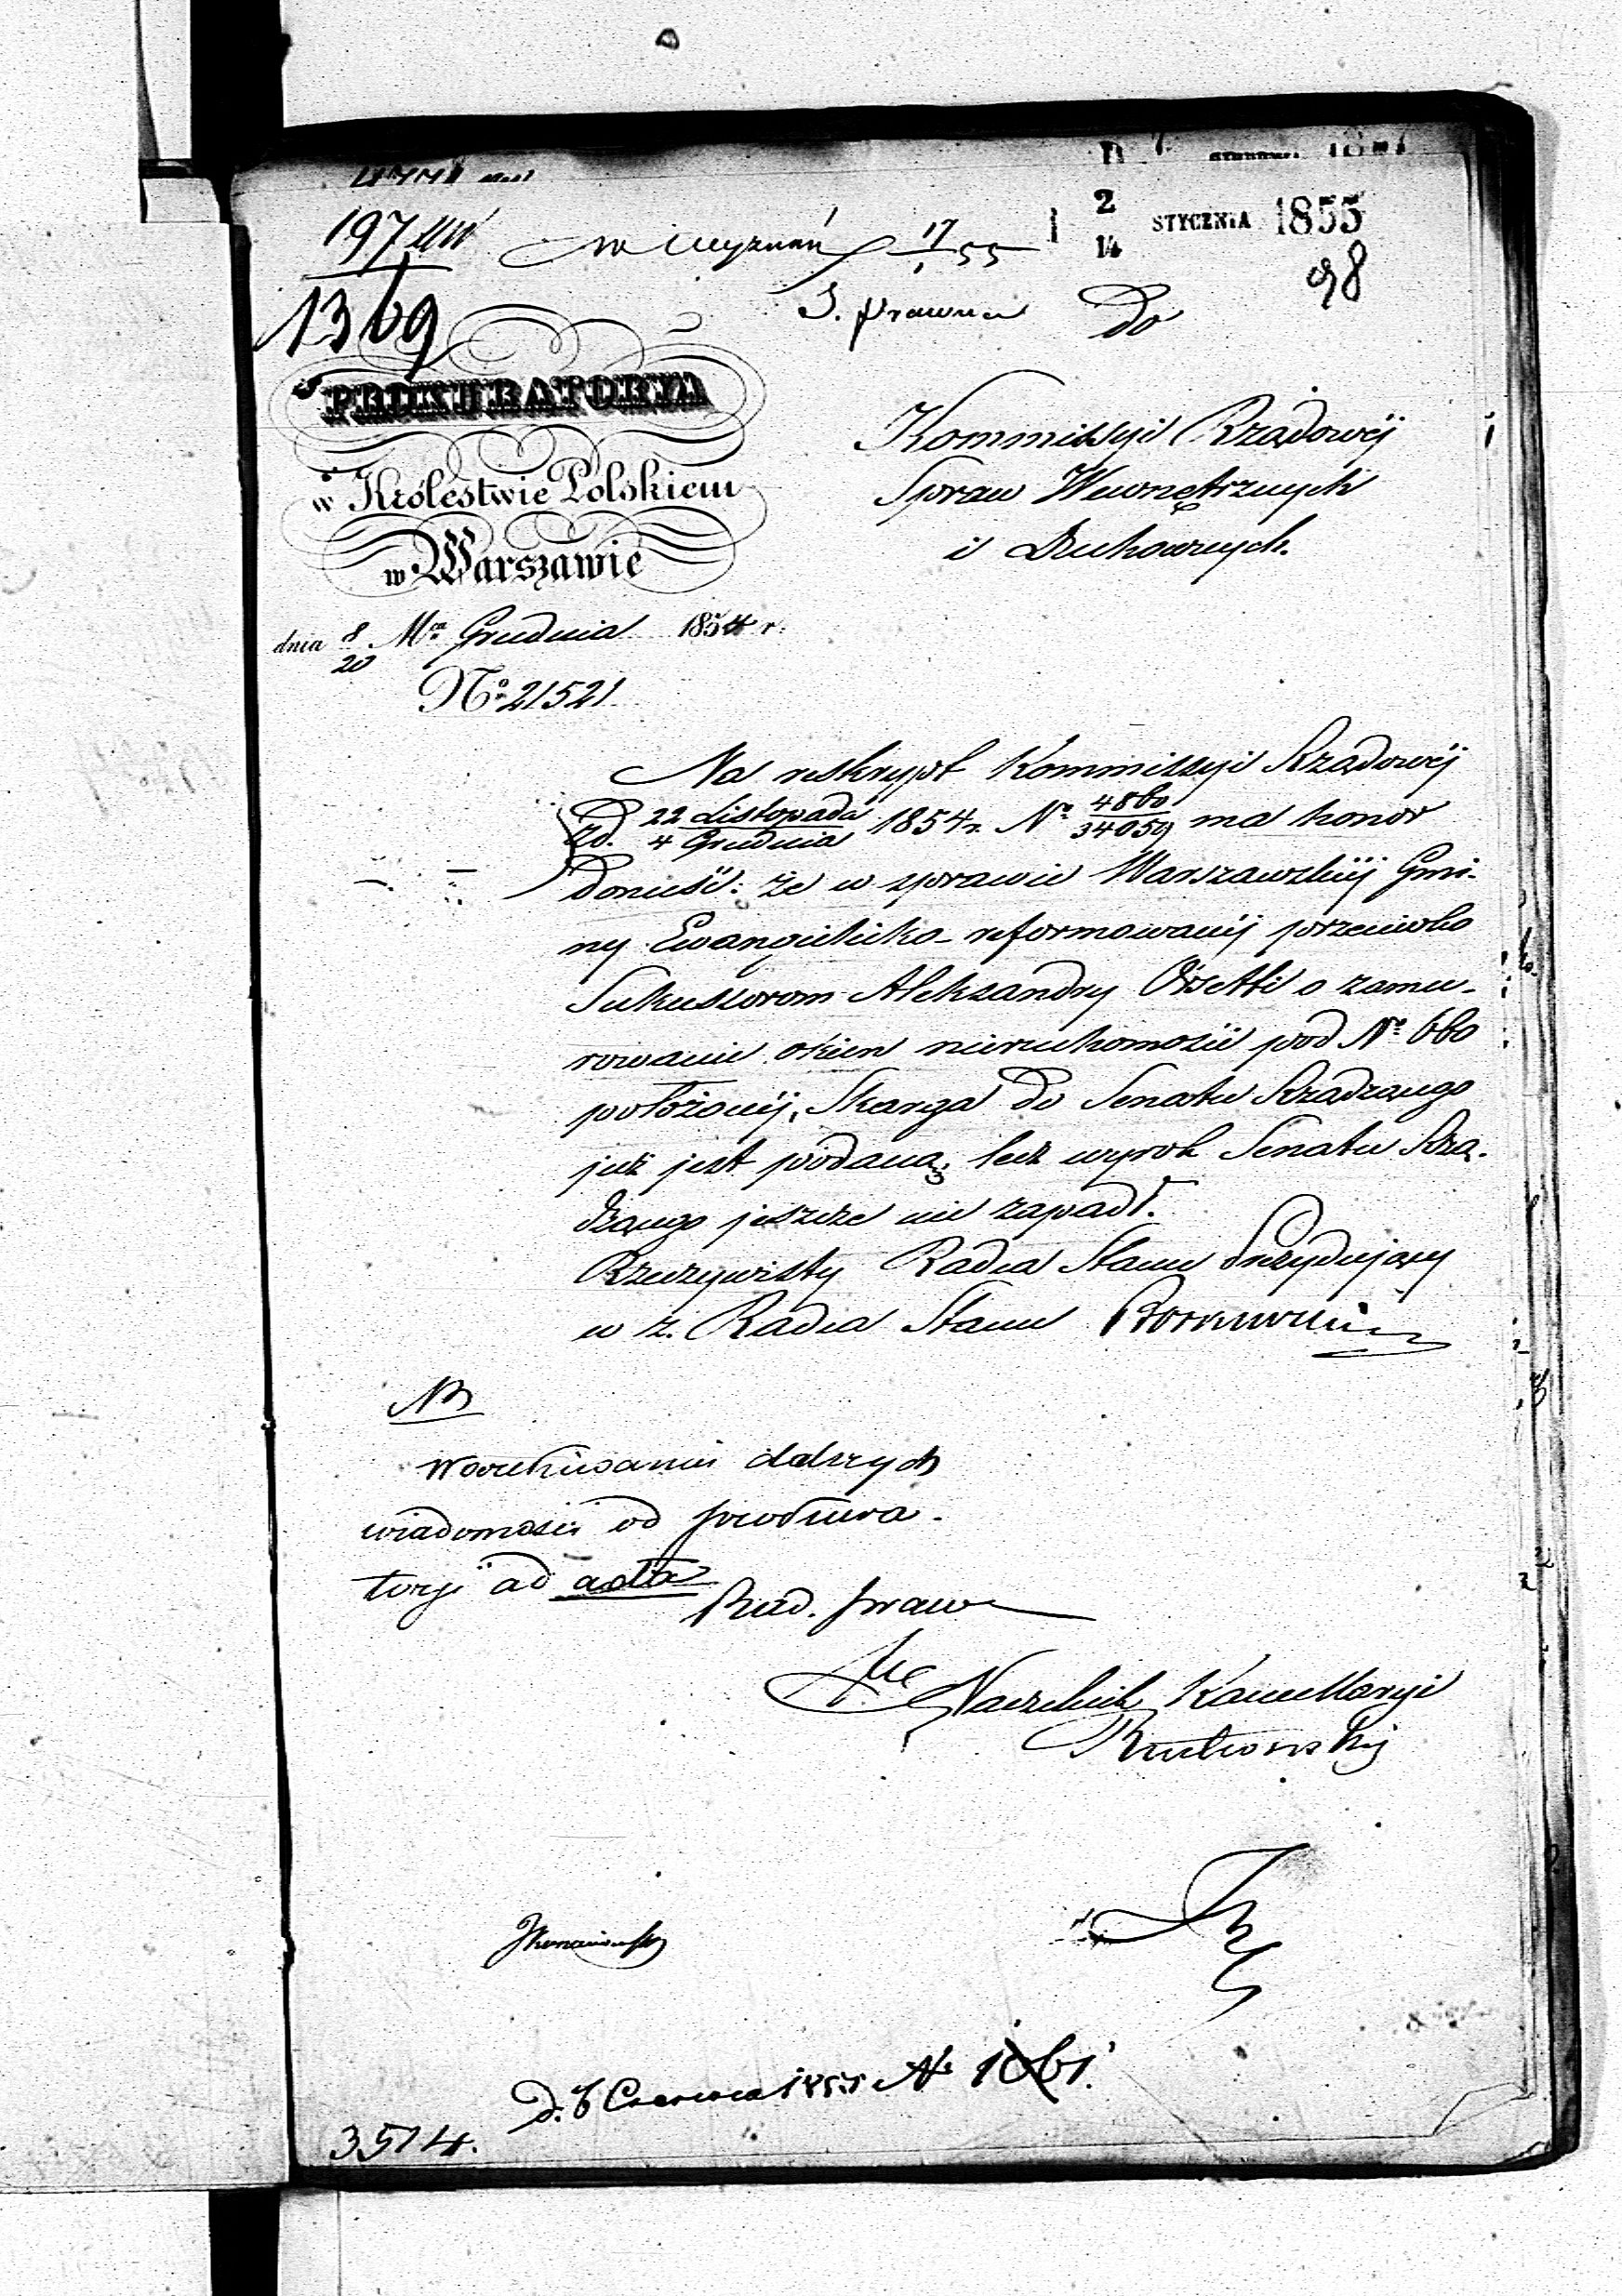 197
1369
W. Wyznań 17/1 55
2
14 STYCZNIA 1855
98
Do
PROKURATORYA
w Królestwie Polskiem
w Warszawie
Kommissyi Rządowéj
Spraw Wewnętrznych
i Duchownych.
dnia 8/20 Mca Grudnia 1854 r.
No 21521
Na reskrypt Kommissyi Rządowéj
z d. 22 Listopada/4 Grudnia 1854 r. No 4860/34059 ma honor
donieść: że w sprawie Warszawskiéj Gmi-
ny Ewangielicko-reformowanéj przeciwko
Sukcessorom Aleksandry Orsetti o zamu-
rowanie okien nieruchomości pod No 660
położonéj, Skarga do Senatu Rządzącego
już jest podaną; lecz wyrok Senatu Rzą-
dzącego jeszcze nie zapadł.
Rzeczywisty Radca Stanu Prezydujący
w z. Radca Stanu
NB
W oczekiwaniu dalszych
wiadomości od prokura-
toryi ad acta
Naczelnik Kancellaryi
Rutkowski
D. 6 Czerwca 1855 No 1061.
3514.